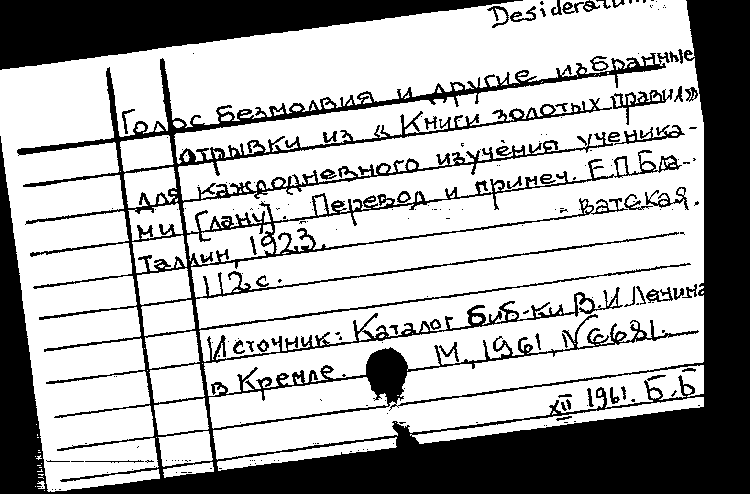 Desideratum.
Голос Безмолвия и другие избранные
отрывки из «Книги золотых правил»
для каждодневного изучения ученика-
ми [лану]. Перевод и примеч. Е.П.Бла-
ватская.
Таллин, 1923.
112 с.
Источник: Каталог Биб-ки В.И Ленина
в Кремле. М., 1961, №6681.
XII 1961. Б.Б